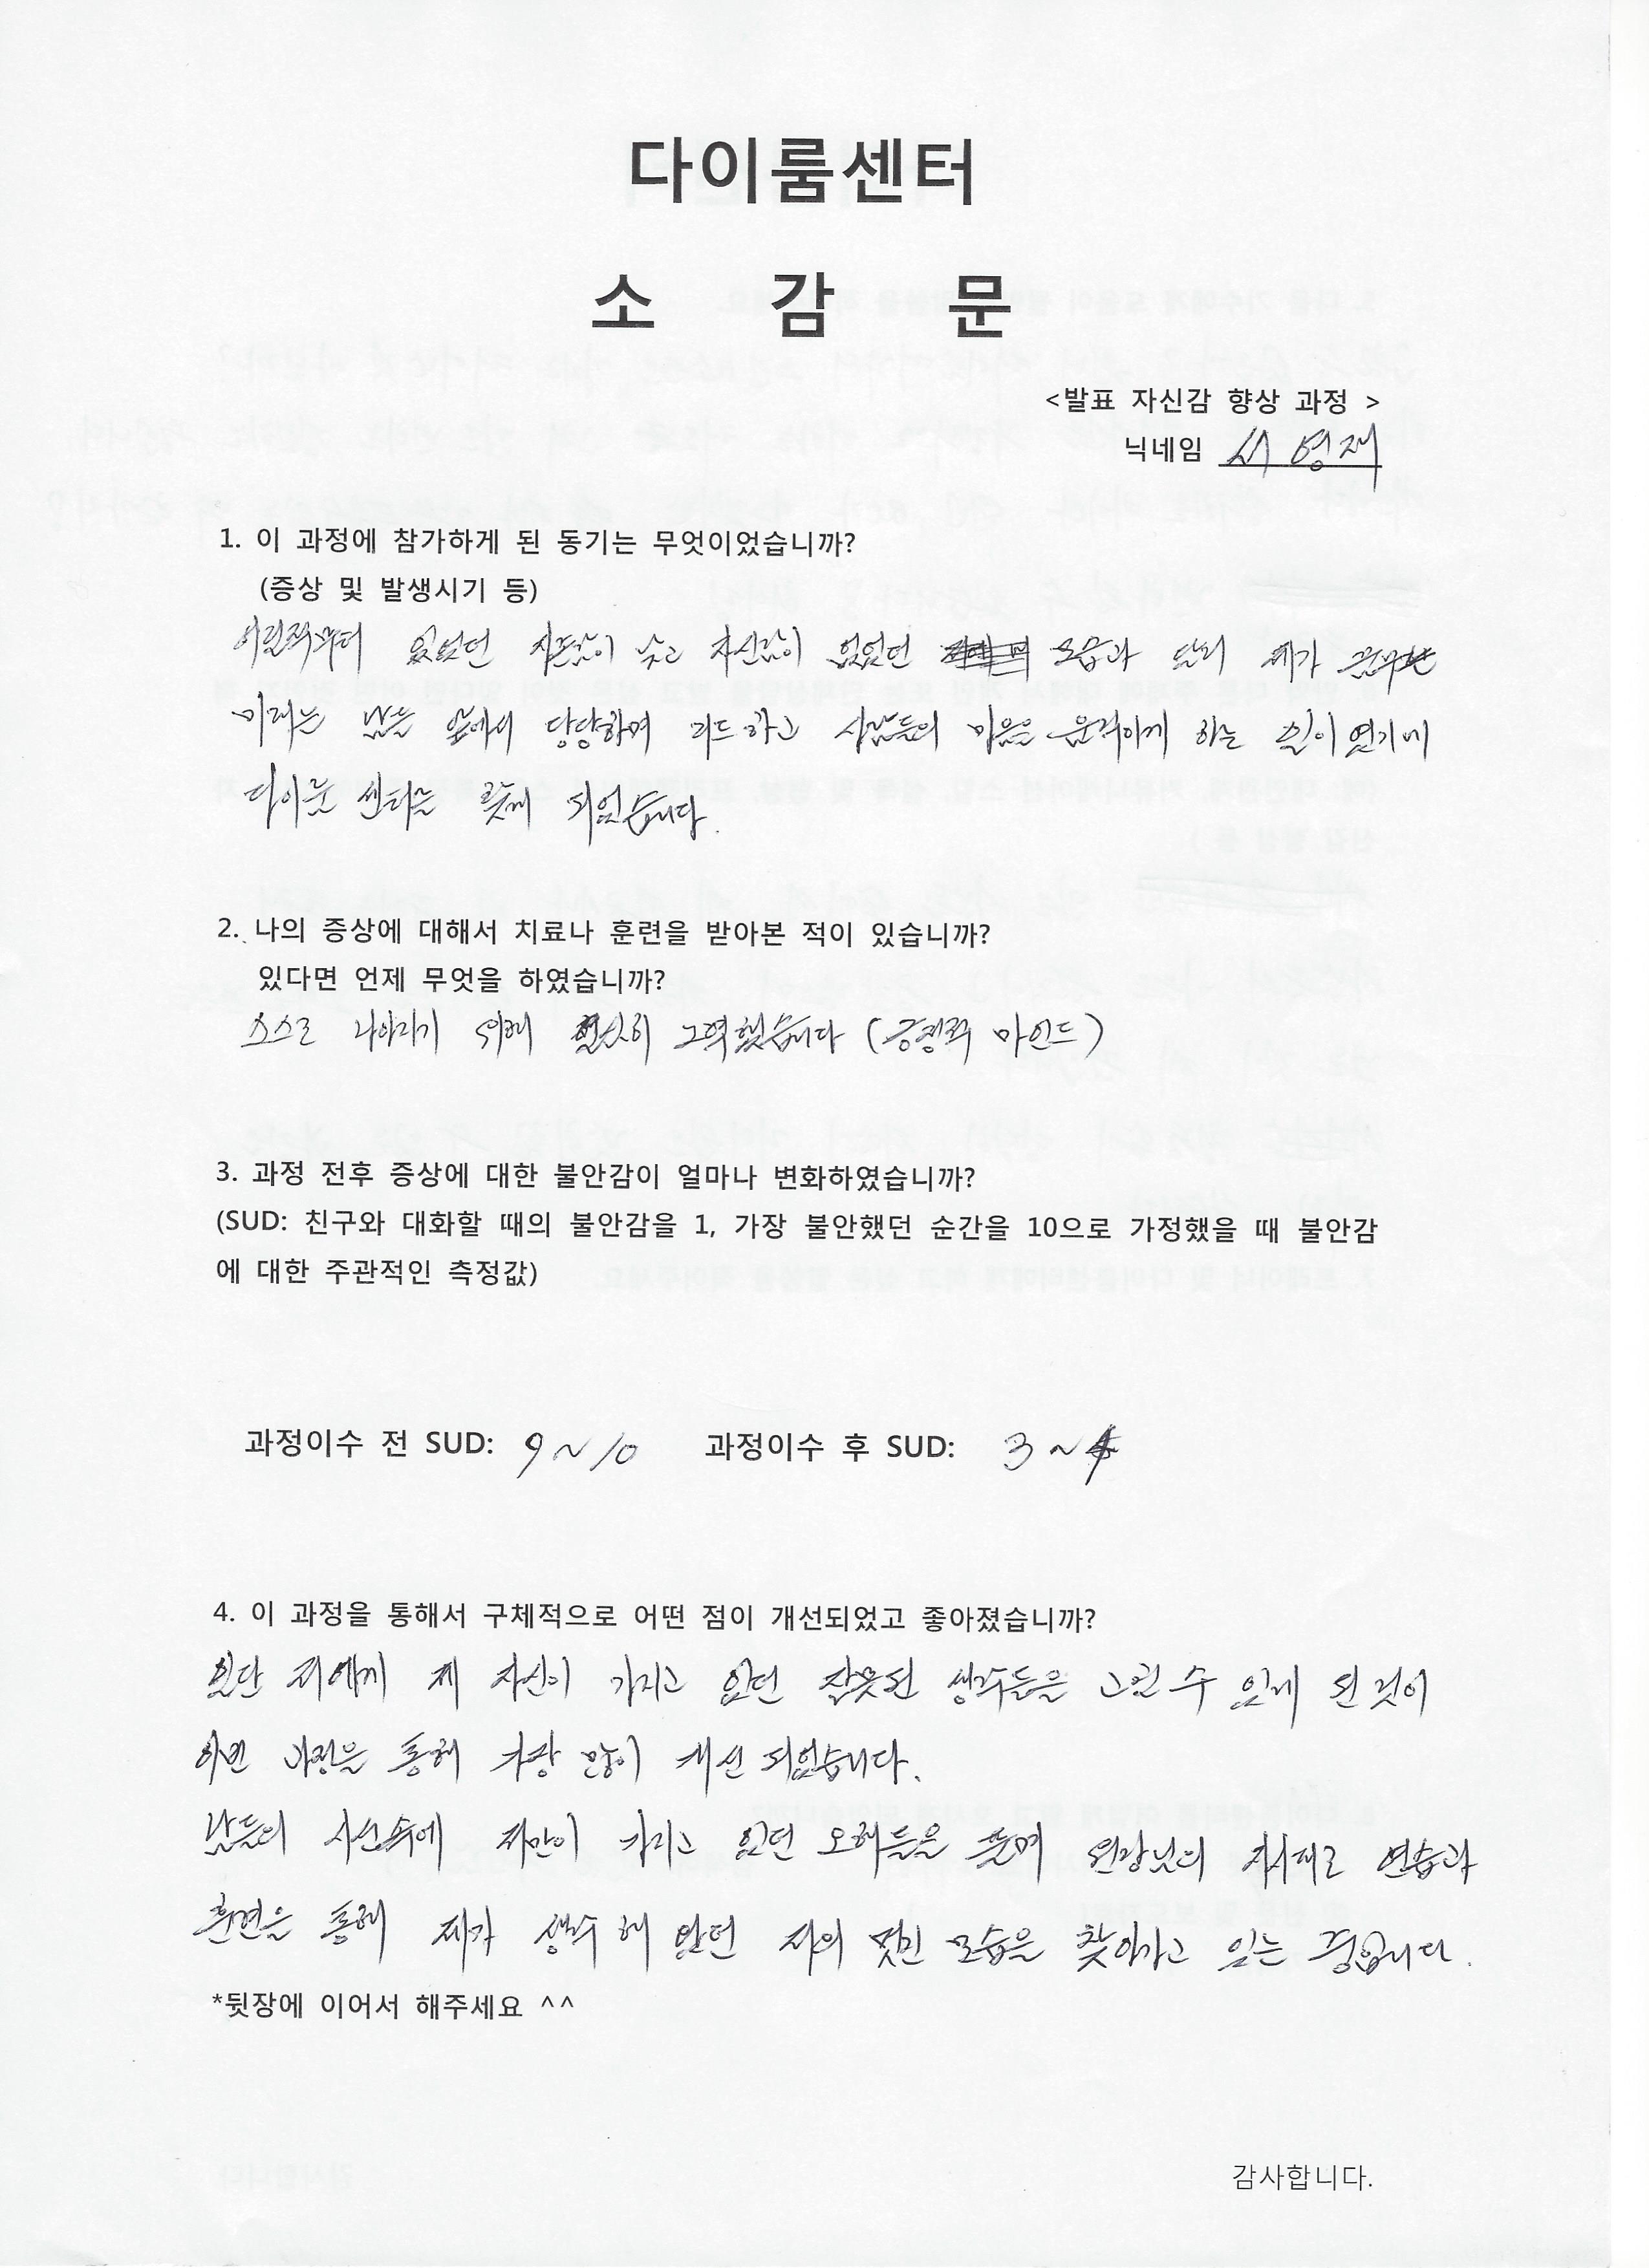 다이룸센터
소 감 문
<발표 자신감 향상 과정 >
닉네임 서영재
1. 이 과정에 참가하게 된 동기는 무엇이었습니까?
(증상 및 발생시기 등)
어릴적부터 있었던 자존심이 낮고 자신감이 없었던 모습과 달리 제가 꿈꾸는
미래는 남들 앞에서 당당하며 리드하고 사람들의 마음을 움직이게 하는 일이였기에
다이룸 센터를 찾게 되었습니다.
2. 나의 증상에 대해서 치료나 훈련을 받아본 적이 있습니까?
있다면 언제 무엇을 하였습니까?
스스로 나아지기 위해 열심히 노력했습니다 (긍정적 마인드)
3. 과정 전후 증상에 대한 불안감이 얼마나 변화하였습니까?
(SUD: 친구와 대화할 때의 불안감을 1, 가장 불안했던 순간을 10으로 가정했을 때 불안감
에 대한 주관적인 측정값)
과정이수 전 SUD: 9~10 과정이수 후 SUD: 3~4
4. 이 과정을 통해서 구체적으로 어떤 점이 개선되었고 좋아졌습니까?
일단 저에게 제 자신이 가지고 있던 잘못된 생각들을 고칠 수 있게 된 것이
이번 과정을 통해 가장 많이 개선 되었습니다.
남들의 시선속에 저만이 가지고 있던 오해들을 풀며 원장님의 지시대로 연습과
훈련을 통해 제가 생각해 왔던 저의 멋진 모습을 찾아가고 있는 중입니다.
*뒷장에 이어서 해주세요 ^^
감사합니다.